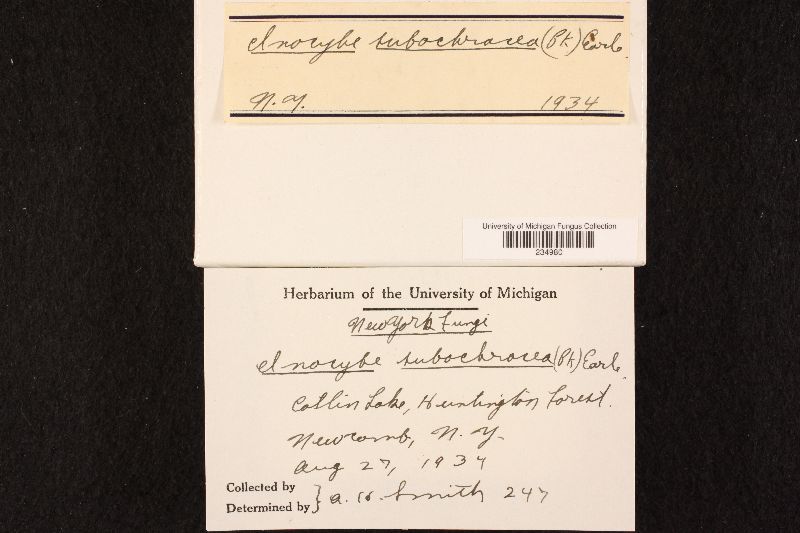 Inocybe subochracea (Pk) Earle
N. Y. 1934
University of Michigan Fungus Collection
234960
Herbarium of the University of Michigan
New York Fungi
Inocybe subochracea (Pk) Earle
Catlin Lake, Huntington Forest.
Newcomb, N. Y.
Aug 27, 1934
Collected by
Determined by } A. H. Smith 247